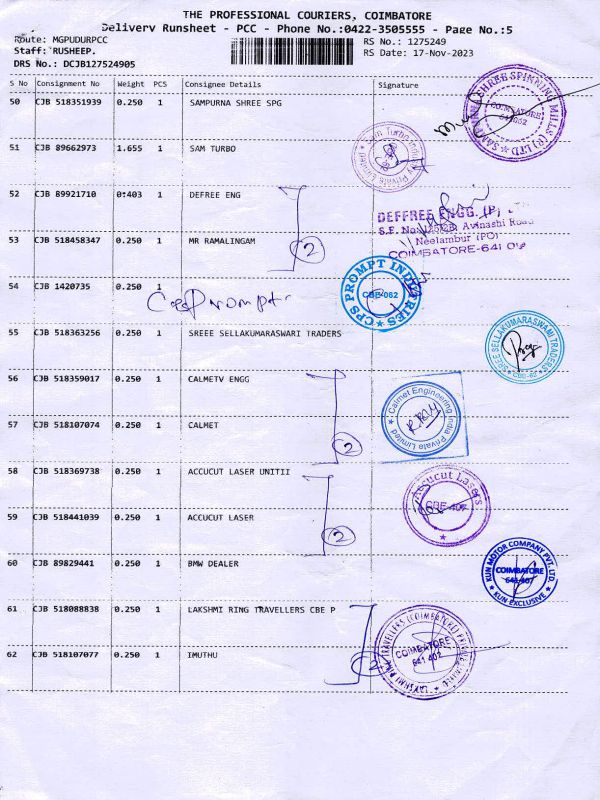 THE PROFESSIONAL COURIERS, COIMBATORE
Delivery Runsheet - PCC - Phone No.:0422-3505555 - Page No.:5
Route: MGPUDURPCC
RS No.: 1275249
Staff: RUSHEEP.
RS Date: 17-Nov-2023
DRS No.: DCJB127524905
S No Consignment No Weight PCS Consignee Details Signature
50 CJB 518351939 0.250 1 SAMPURNA SHREE SPG
SHREE SPINNING MILLS (P) LTD
COIMBATORE
51 CJB 89662973 1.655 1 SAM TURBO
Sam Turbo India Private Limited
52 CJB 89921710 0:403 1 DEFREE ENG
DEFFREE ENGG. (P)
Avinashi Road
Neelambur (PO)
COIMBATORE-641
53 CJB 518458347 0.250 1 MR RAMALINGAM
2
54 CJB 1420735 0.250 1
CPS PROMPT INDUSTRIES
CBE-062
55 CJB 518363256 0.250 1 SREEE SELLAKUMARASWARI TRADERS
SREE SELLAKUMARASWARI TRADERS
56 CJB 518359017 0.250 1 CALMETV ENGG
Calmet Engineering India Private Limited
57 CJB 518107074 0.250 1 CALMET
2
58 CJB 518369738 0.250 1 ACCUCUT LASER UNITII
Accucut Lasers
CBE-407
59 CJB 518441039 0.250 1 ACCUCUT LASER
2
60 CJB 89829441 0.250 1 BMW DEALER
KUN MOTOR COMPANY PVT. LTD.
COIMBATORE
641 407
KUN EXCLUSIVE
61 CJB 518088838 0.250 1 LAKSHMI RING TRAVELLERS CBE P
LAKSHMI RING TRAVELLERS (COIMBATORE) PRIVATE LIMITED
COIMBATORE
641 402
62 CJB 518107077 0.250 1 IMUTHU
2